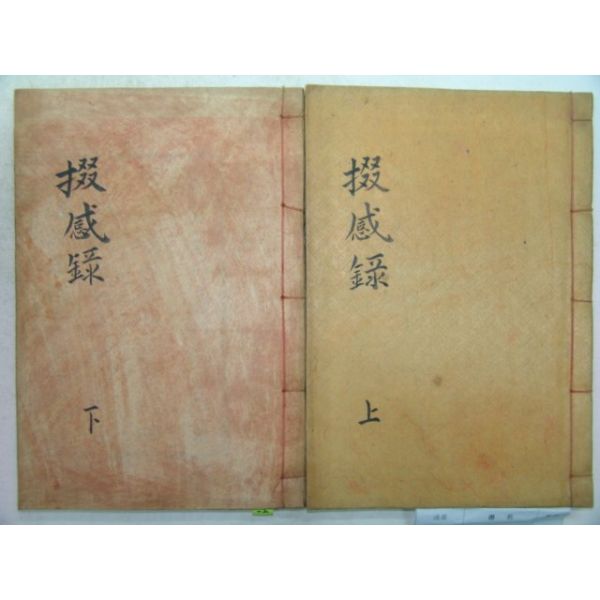 掇感錄
上
掇感錄
下